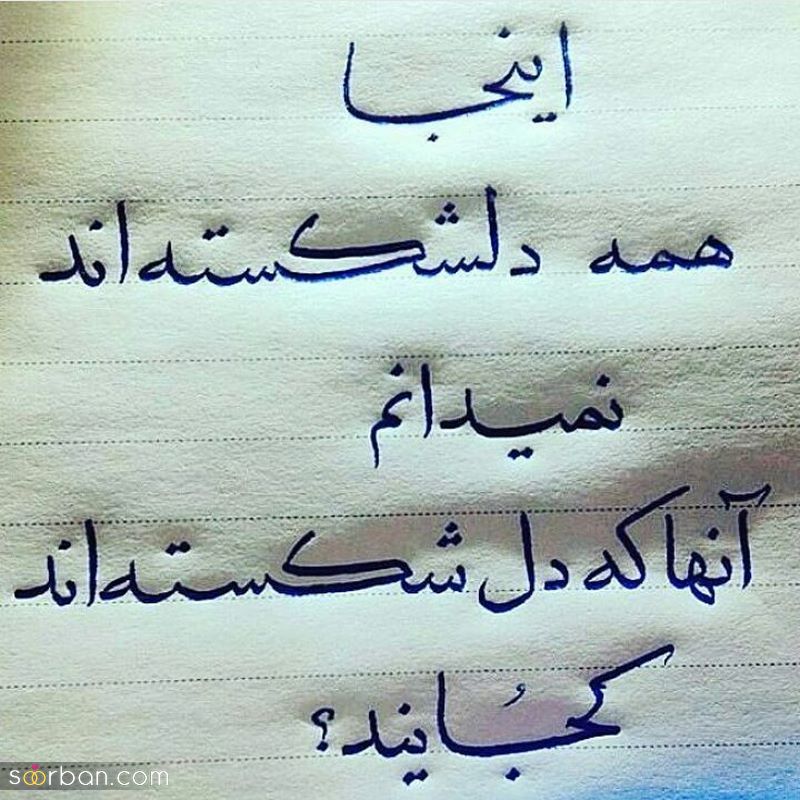 اینجا
همه دلشکسته‌اند
نمیدانم
آنها که دل شکسته‌اند
کجُایند؟
soorban.com